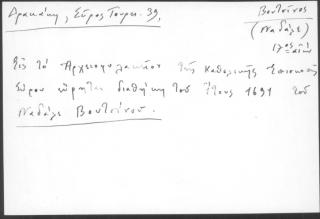 Δρακάκη, Σῦρος Τουρκ. 39,
Βουτσῖνος
(Ναδάλε)
17ος αἰών
Εἰς τὸ Ἀρχειοφυλακεῖον τῆς Καθολικῆς Ἐπισκοπῆς
Σύρου εὕρηται διαθήκη τοῦ ἔτους 1691 τοῦ
Ναδάλε Βουτσίνου.